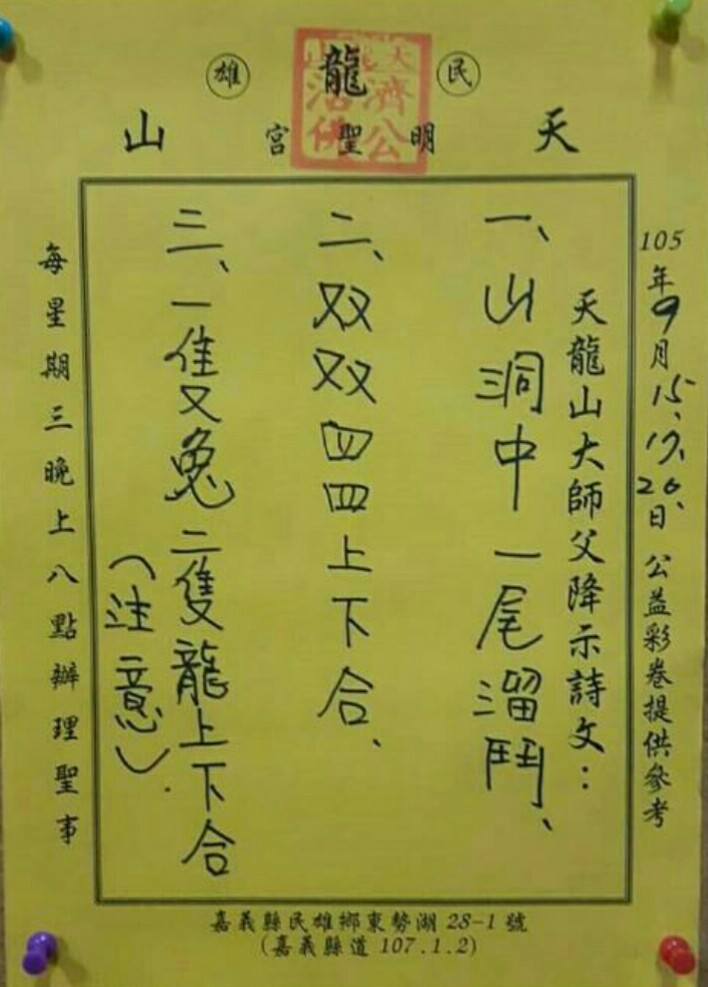 民雄
天龍山
明聖宮
天龍山
濟公
活佛
105年9月15、17、20、日 公益彩卷提供參考
天龍山大師父降示詩文：
一、山洞中一尾溜鬥、
二、双双四四上下合、
三、一隻兔二隻龍上下合
（注意）.
每星期三晚上八點辦理聖事
嘉義縣民雄鄉東勢湖 28-1 號
(嘉義縣道 107.1.2)